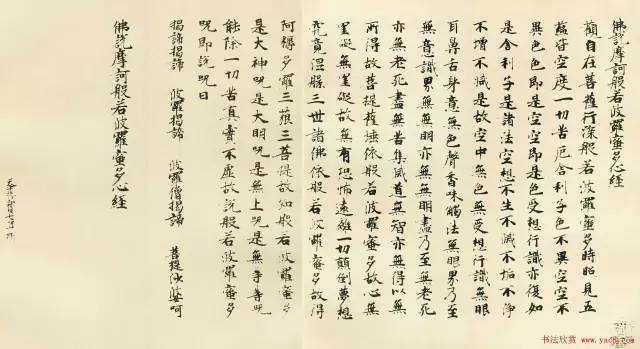 佛說摩訶般若波羅蜜多心経
觀自在菩薩行深般若波羅蜜多時照見五
蘊皆空度一切苦厄舍利子色不異空空不
異色色即是空空即是色受想行識亦復如
是舍利子是諸法空想不生不滅不垢不淨
不增不減是故空中無色無受想行識無眼
耳鼻舌身意無色聲香味觸法無眼界乃至
無意識界無無明亦無無明盡乃至無老死
亦無老死盡無苦集滅道無智亦無得以無
所得故菩提薩埵依般若波羅蜜多故心無
罣礙無罣礙故無有恐怖遠離一切顛倒夢想
究竟涅槃三世諸佛依般若波羅蜜多故得
阿耨多羅三藐三菩提故知般若波羅蜜多
是大神呪是大明呪是無上呪是無等等呪
能除一切苦真實不虛故說般若波羅蜜多
呪即說呪曰
揭諦揭諦 波羅揭諦 波羅僧揭諦 菩提沙婆呵
佛說摩訶般若波羅蜜多心経
书法欣赏